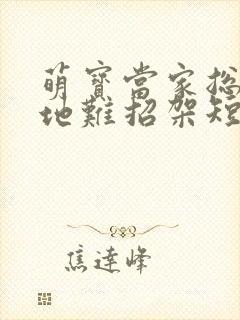 萌寶當家總
地難招架短
焦達峰